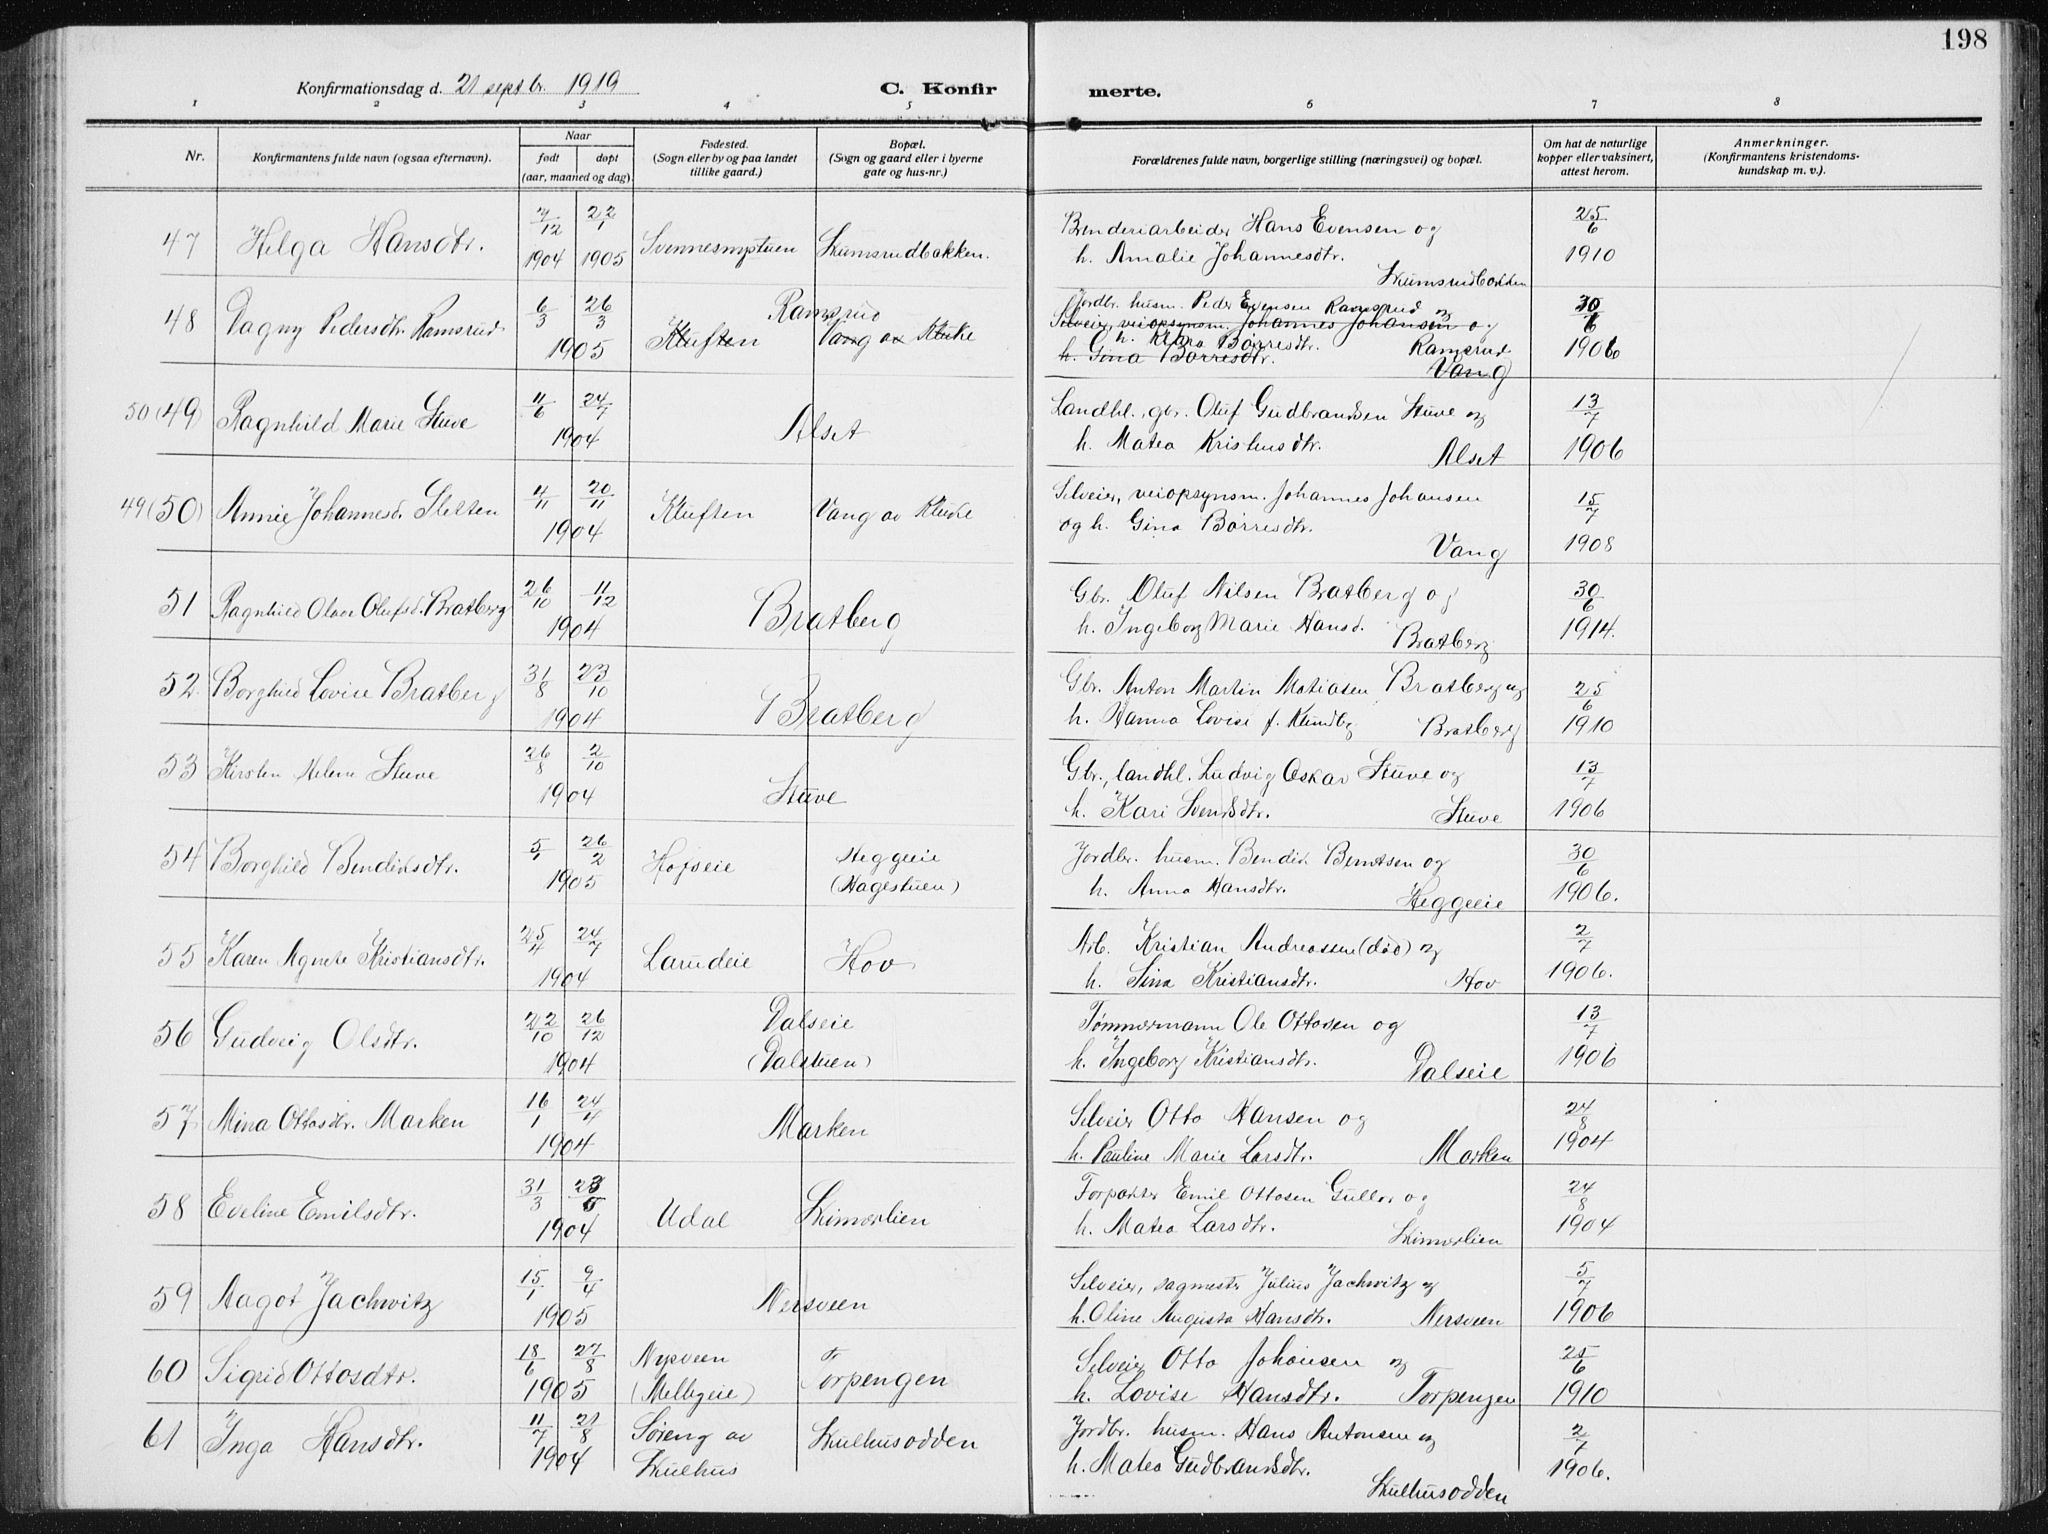 198
Konfirmationsdag d. 21 septbr. 1919
C. Konfirmerte.
1 2 3 4 5 6 7 8
Nr.
Konfirmantens fulde navn (ogsaa efternavn).
Naar
født døpt
(aar, maaned og dag)
Fødested.
(Sogn eller by og paa landet
tillike gaard.)
Bopæl.
(Sogn og gaard eller i byerne
gate og hus-nr.)
Forældrenes fulde navn, borgerlige stilling (næringsvei) og bopæl.
Om hat de naturlige
kopper eller vaksinert,
attest herom.
Anmerkninger.
(Konfirmantens kristendoms-
kundskap m. v.).
47 Helga Hansdtr. 7/12 1904 22/1 1905 Svennesmystuen Skumsrudbakken.
Brenderiarbeider Hans Evensen og 25/6
h. Amalie Johannesdtr. 1910
Skumsrudbakken
48 Dagny Pedersdtr. Ramsrud 6/3 26/3 1905 Ramsrud
Kluften Vang av Kluke
Jordbr. husm. Peder Evensen Ramsrud og 30/6
Selveier, veiopsynsm. Johannes Johansen og
h. Klara Børresdtr. Ramsrud 1906
h. Gina Børresdtr. Vang
50 (49) Ragnhild Marie Stuve 11/6 24/7 1904 Alset
Landhl., gbr. Oluf Gudbrandsen Stuve og 13/7
h. Matea Kristensdtr. Alset 1906
49 (50) Annie Johannesd. Sletten 4/11 20/11 1904 Kluften Vang av Kluke
Selveier, veiopsynsm. Johannes Johansen 15/7
og h. Gina Børresdtr. 1908
Vang
51 Ragnhild Olava Olufsd. Bratberg 26/10 11/12 1904 Bratberg
Gbr. Oluf Nilsen Bratberg og 30/6
h. Ingeborg Marie Hansd. Bratberg 1914.
52. Borghild Lovise Bratberg 31/8 23/10 1904 Bratberg
Gbr. Anton Martin Matiasen Bratberg og 25/6
h. Hanna Lovise f. Klundby Bratberg 1910
53 Kirsten Helene Stuve 26/8 2/10 1904 Stuve
Gbr., landhl. Ludvig Oskar Stuve og 13/7
h. Kari Svendsdtr. Stuve 1906
54 Borghild Bendiksdtr. 5/1 26/2 1905 Hofseie Heggeeie
(Hagestuen)
Jordbr. husm. Bendik Berntsen og 30/6
h. Anna Hansdtr. Heggeeie 1906.
55 Karen Agnete Kristiansdtr. 25/4 24/7 1904 Larudeie Hov
Arb. Kristian Andreassen (død) og 2/7
h. Sina Kristiansdtr. Hov 1906.
56 Gudveig Olsdtr. 22/10 26/12 1904 Dalseie
(Dalstuen)
Tømmermann Ole Ottosen og 13/7
h. Ingeborg Kristiansdtr. Dalseie 1906
57 Mina Ottosdtr. Marken 16/1 24/4 1904 Marken
Selveier Otto Hansen og 24/8
h. Pauline Marie Larsdtr. Marken 1904
58 Eveline Emilsdtr. 31/3 23/5 1904 Udal Skimerlien
Forpakter Emil Ottosen Gullor og 24/8
h. Matea Larsdtr. Skimerlien 1904
59 Aagot Jachwitz 15/1 9/4 1905 Nersveen
Selveier, sagmester Julius Jachwitz og 5/7
h. Oline Augusta Hansdtr. Nersveen 1906
60 Sigrid Ottosdtr. 18/6 27/8 1905 Nysveen Torpengen
(Mellegeie)
Selveier Otto Johansen og 25/6
h. Lovise Hansdtr. Torpengen 1910
61 Inga Hansdtr. 11/7 21/8 1904 Søreng av Skulhusodden
Skulhus
Jordbr. husm. Hans Antonsen og 2/7
h. Matea Gudbrandsdtr. 1906.
Skulhusodden